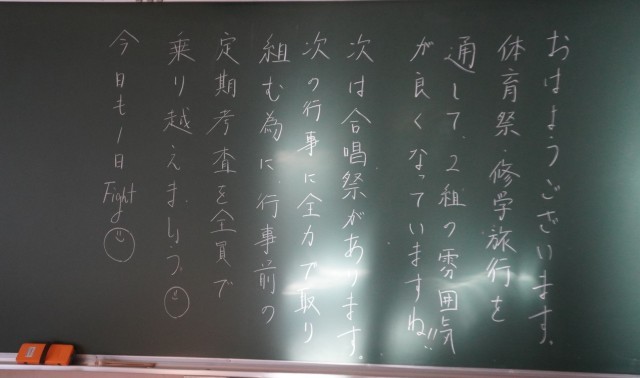 おはようございます。
体育祭・修学旅行を
通して、2組の雰囲気
が良くなっていますね!!
次は合唱祭があります。
次の行事に全力で取り
組む為に、行事前の
定期考査を全員で
乗り越えましょう。
今日も1日Fight